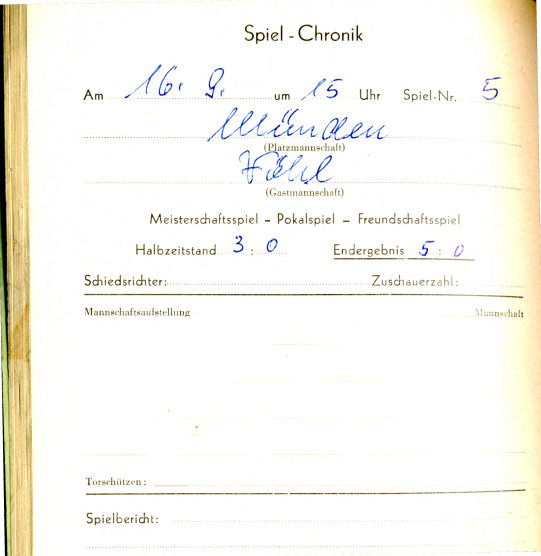 Spiel - Chronik
Am 16. 9. um 15 Uhr Spiel-Nr. 5
Münden
(Platzmannschaft)
Vöhl
(Gastmannschaft)
Meisterschaftsspiel – Pokalspiel – Freundschaftsspiel
Halbzeitstand 3 : 0 Endergebnis 5 : 0
Schiedsrichter: Zuschauerzahl:
Mannschaftsaufstellung Mannschaft
Torschützen:
Spielbericht: